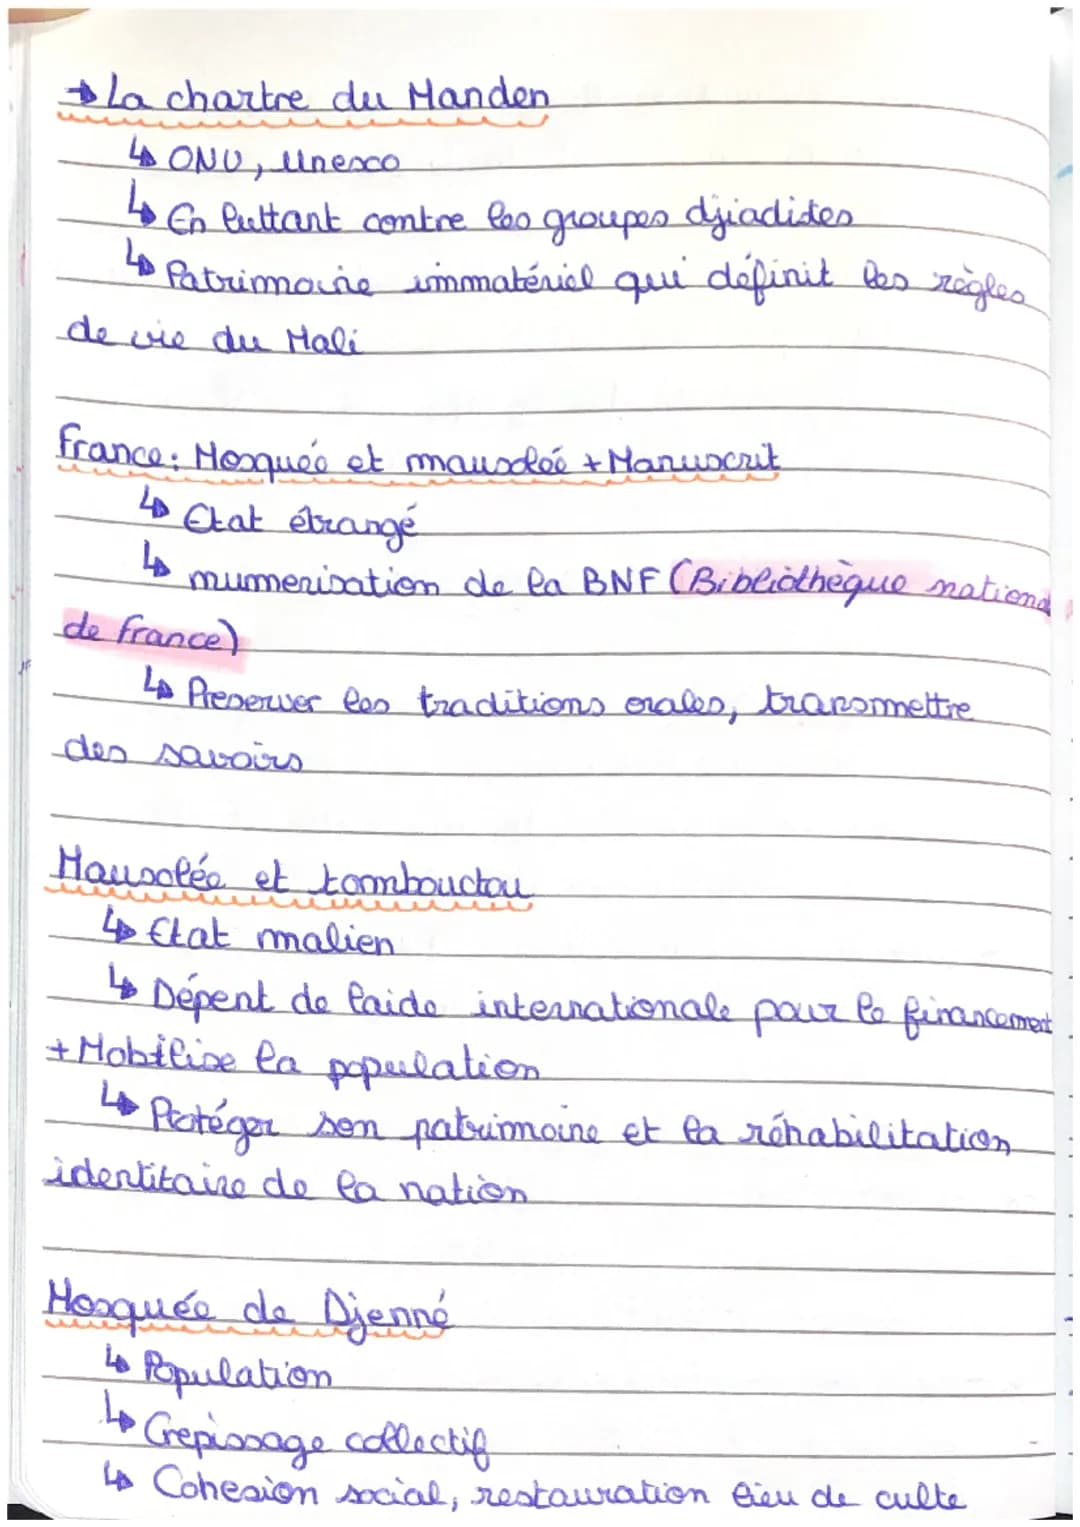 → La chartre du Manden
↳ ONU, Unesco
↳ En luttant contre les groupes djiadistes
↳ Patrimoine immatériel qui définit les règles
de vie du Mali
France: Mosquée et mausolée + Manuscrit
↳ Etat étrangé
↳ numerisation de la BNF (Bibliothèque national
de france)
↳ Preserver les traditions orales, transmettre
des savoirs
Mausolée et tombouctou
↳ Etat malien
↳ Dépent de laide internationale pour le financement
+ Mobilise la population
↳ Protéger son patrimoine et la réhabilitation
identitaire de la nation
Mosquée de Djenné
↳ Population
↳ Crepissage collectif
↳ Cohesion social, restauration lieu de culte